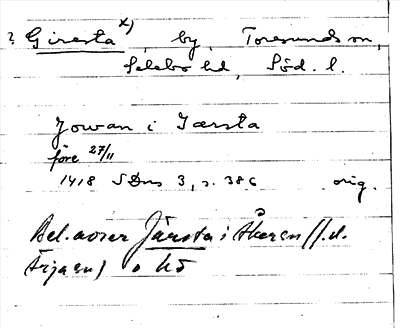 ? Giresta x) , by, Toresunds sn,
Selebo hd, Söd. l.
Jowan i Iærsta
före 27/11
1418 SDns 3, s. 386 orig.
Bel. avser Järsta i Åkers sn (f.d.
Ärja sn) o hd